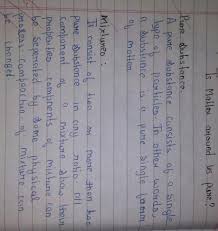 Is Matter around us pure?
Pure substance:
A pure substance consists of a single
type of particles. In other words,
a substance is a pure single form
of matter.
Mixtures:
It consist of two or more than two
pure substance in any ratio. All
component of a mixture show their
properties components of mixture can
be seperated by some physical
process. composition of mixture can
be changed